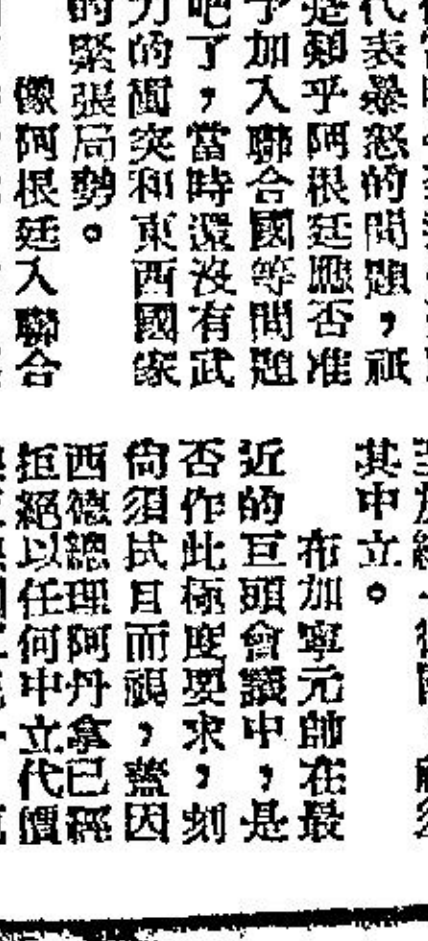 代表暴怒的問題，祇
是顯乎阿根廷應否准
予加入聯合國等問題
吧了，當時還沒有武
力的衝突和東西國家
的緊張局勢。
像阿根廷入聯合
其中立。
布加寧元帥在最
近的巨頭會議中，是
否作此極度要求，刻
尙須拭目而視，蓋因
西德總理阿丹拿已經
拒絕以任何中立代價